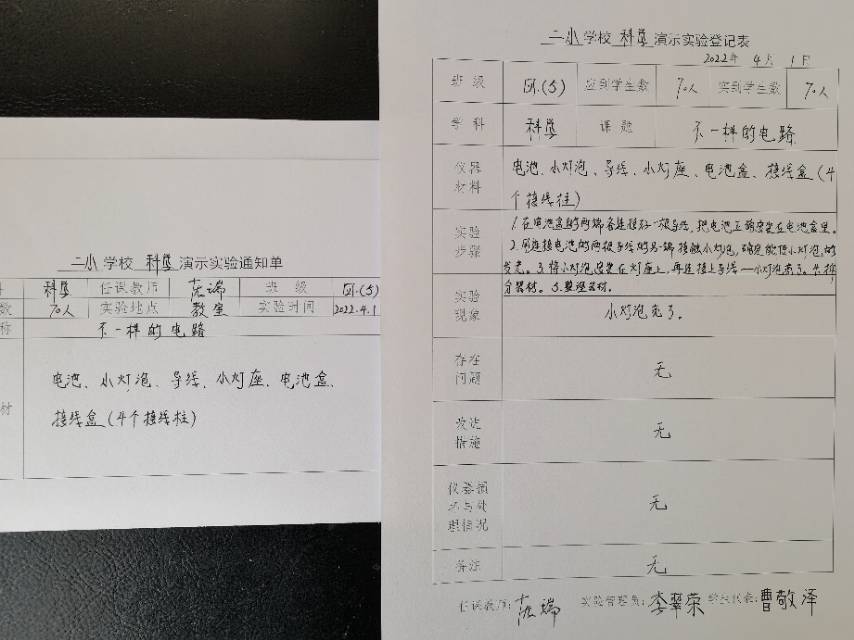 二小学校科学演示实验通知单
科学 任课教师 范端 班级 四.(5)
数 70人 实验地点 教室 实验时间 2022.4.1
称 不一样的电路
材 电池、小灯泡、导线、小灯座、电池盒、
接线盒(4个接线柱)
二小学校科学演示实验登记表
2022年 4月 1日
班级 四.(5) 应到学生数 70人 实到学生数 70人
学科 科学 课题 不一样的电路
仪器材料 电池、小灯泡、导线、小灯座、电池盒、接线盒(4
个接线柱)
实验步骤 1.在电池盒的两端各连接好一根导线,把电池正确安装在电池盒里。
2.用连接电池的两根导线的另一端接触小灯泡,确定能使小灯泡的
发光。3.将小灯泡安装在灯座上,再连接上导线——小灯泡亮了。4.拆
分器材。5.整理器材。
实验现象 小灯泡亮了。
存在问题 无
改进措施 无
仪器损坏与处理情况 无
备注 无
任课教师:范端 实验管理员:李翠荣 学生代表:曹敬泽